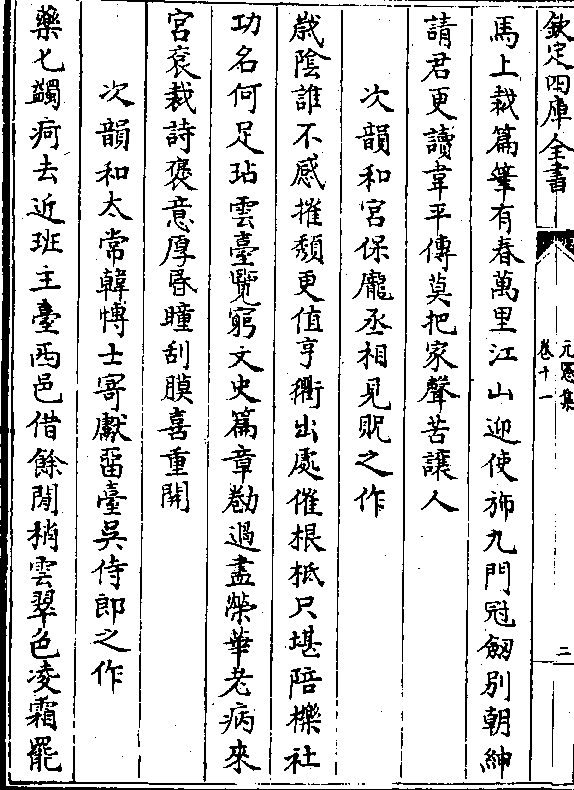 欽定四庫全書
元憲集
卷十一
三
馬上裁篇筆有春萬里江山迎使斾九門冠劒別朝紳
請君更讀韋平傳莫把家聲苦讓人
次韻和宮保龐丞相見貺之作
歳陰誰不感摧頽更值亨衢出處催根柢只堪陪櫟社
功名何足玷雲臺覽窮文史篇章勌過盡榮華老病來
宮衮裁詩褒意厚昏瞳刮膜喜重開
次韻和太常韓愽士寄獻畱臺吳侍郎之作
藥七蠲疴去近班主臺西邑借餘閒梢雲翠色凌霜罷